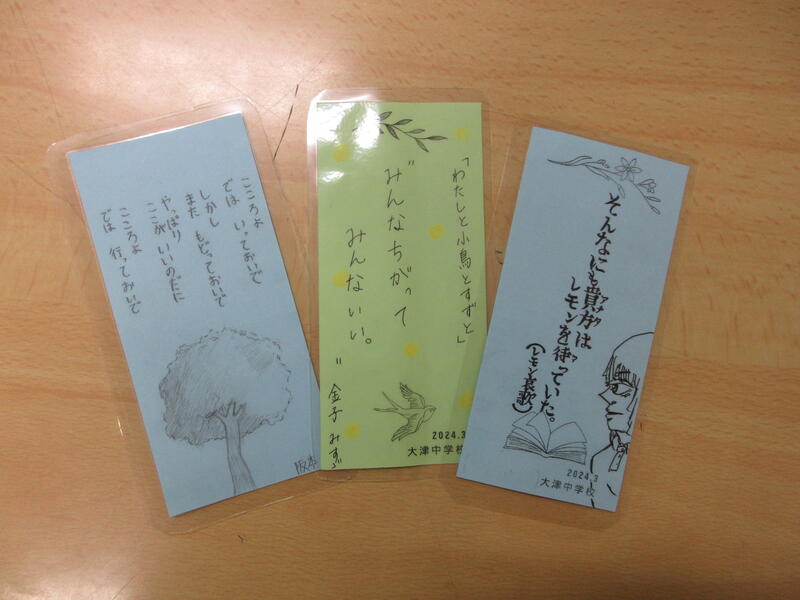 こころよ
では いっておいで
しかし
また もどっておいで
やっぱり
ここが いいのだに
こころよ
では 行っておいで
阪本
「わたしと小鳥とすずと」
"みんなちがって
みんないい。"
金子 みすゞ
2024.3
大津中学校
そんなにも貴方は
レモンを待っていた。
(レモン哀歌)
2024.3
大津中学校